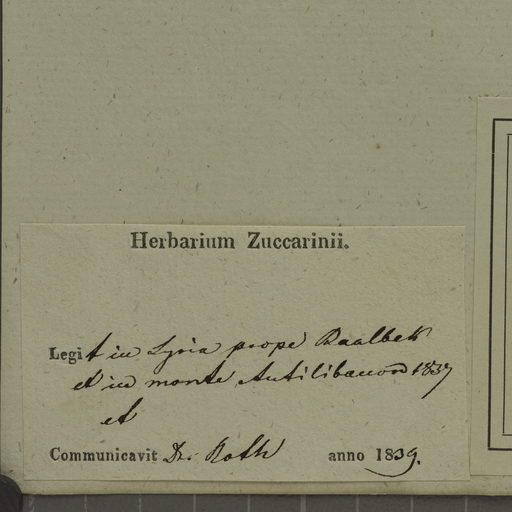 Herbarium Zuccarinii.
Legit in Syria prope Baalbek
et in monte Antilibanon 1837
et
Communicavit Dr. Roth anno 1839.